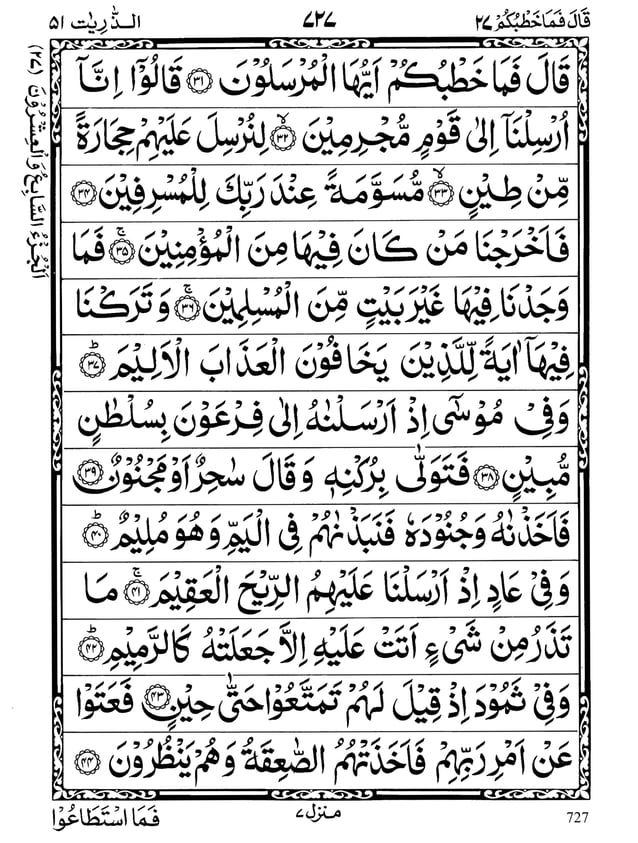 قَالَ فَمَا خَطْبُكُمْ ٢٧
٧٢٧
الذّٰرِيٰت ٥١
قَالَ فَمَا خَطْبُكُمْ اَيُّهَا الْمُرْسَلُوْنَ ﴿٣١﴾ قَالُوْٓا اِنَّآ
اُرْسِلْنَآ اِلٰى قَوْمٍ مُّجْرِمِيْنَ ﴿٣٢﴾ۙ لِنُرْسِلَ عَلَيْهِمْ حِجَارَةً
مِّنْ طِيْنٍ ﴿٣٣﴾ۙ مُّسَوَّمَةً عِنْدَ رَبِّكَ لِلْمُسْرِفِيْنَ ﴿٣٤﴾
فَاَخْرَجْنَا مَنْ كَانَ فِيْهَا مِنَ الْمُؤْمِنِيْنَ ﴿٣٥﴾ۚ فَمَا
وَجَدْنَا فِيْهَا غَيْرَ بَيْتٍ مِّنَ الْمُسْلِمِيْنَ ﴿٣٦﴾ۚ وَ تَرَكْنَا
فِيْهَآ اٰيَةً لِّلَّذِيْنَ يَخَافُوْنَ الْعَذَابَ الْاَلِيْمَ ﴿٣٧﴾ؕ
وَفِيْ مُوْسٰٓى اِذْ اَرْسَلْنٰهُ اِلٰى فِرْعَوْنَ بِسُلْطٰنٍ
مُّبِيْنٍ ﴿٣٨﴾ فَتَوَلّٰى بِرُكْنِهٖ وَ قَالَ سٰحِرٌ اَوْ مَجْنُوْنٌ ﴿٣٩﴾
فَاَخَذْنٰهُ وَ جُنُوْدَهٗ فَنَبَذْنٰهُمْ فِي الْيَمِّ وَ هُوَ مُلِيْمٌ ﴿٤٠﴾ؕ
وَ فِيْ عَادٍ اِذْ اَرْسَلْنَا عَلَيْهِمُ الرِّيْحَ الْعَقِيْمَ ﴿٤١﴾ۚ مَا
تَذَرُ مِنْ شَيْءٍ اَتَتْ عَلَيْهِ اِلَّا جَعَلَتْهُ كَالرَّمِيْمِ ﴿٤٢﴾ؕ
وَ فِيْ ثَمُوْدَ اِذْ قِيْلَ لَهُمْ تَمَتَّعُوْا حَتّٰى حِيْنٍ ﴿٤٣﴾ فَعَتَوْا
عَنْ اَمْرِ رَبِّهِمْ فَاَخَذَتْهُمُ الصّٰعِقَةُ وَ هُمْ يَنْظُرُوْنَ ﴿٤٤﴾
اَلْجُزْءُ السَّابِعُ وَالْعِشْرُوْنَ (٢٧)
727
منزل ٧
فَمَا اسْتَطَاعُوْا